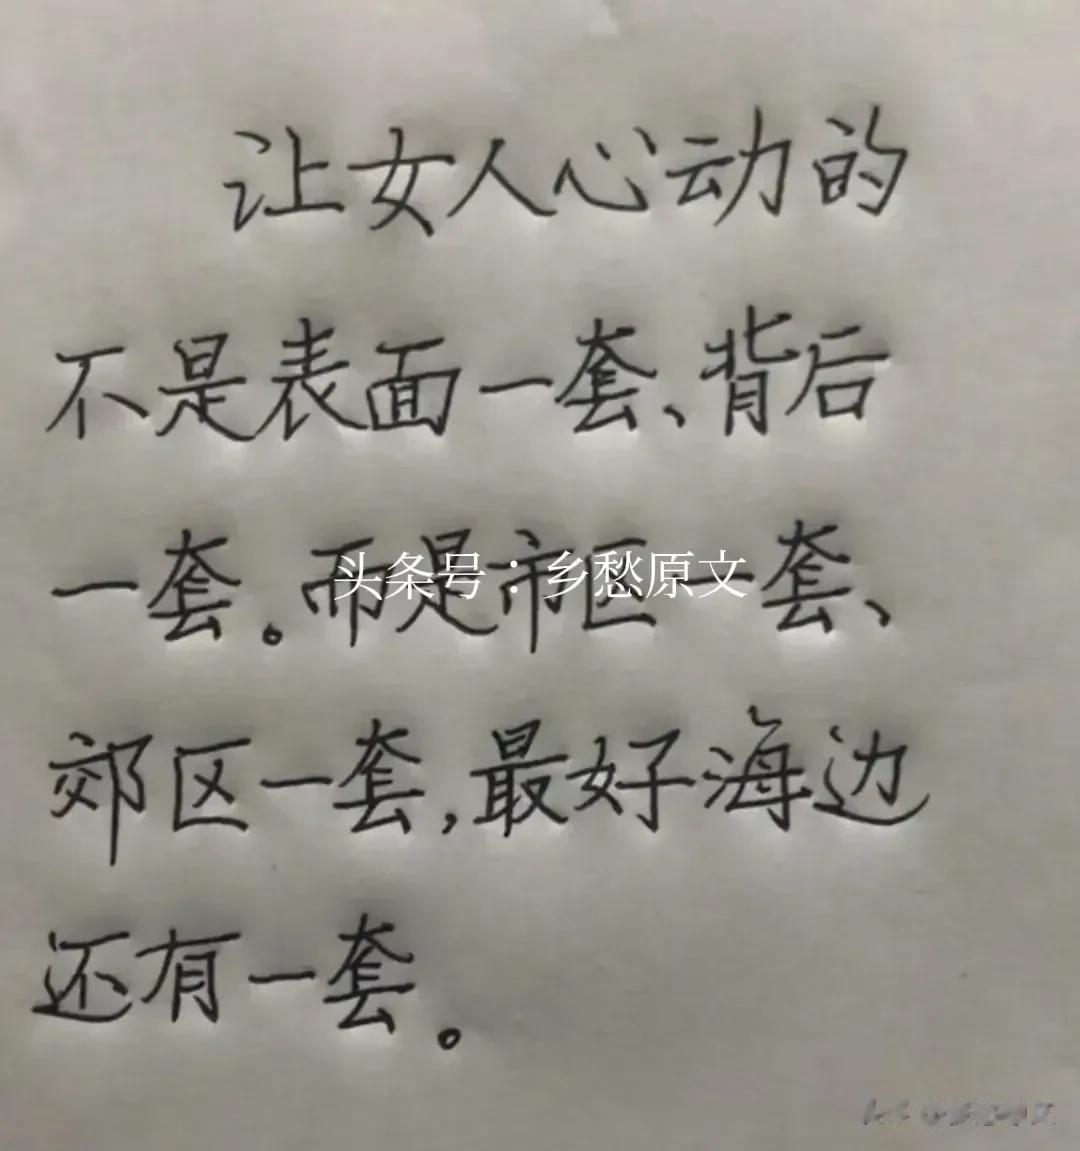 让女人心动的
不是表面一套、背后
一套。而是市区一套、
头条号：乡愁原文
郊区一套,最好海边
还有一套。